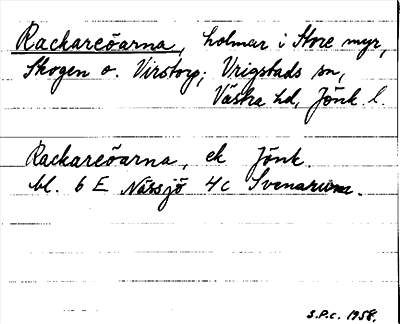 Rackareöarna, holmar i Store myr,
Skogen o. Virstorp; Vrigstads sn,
Västra hd, Jönk. l.
Rackareöarna, ek Jönk.
bl. 6 E Nässjö 4c Svenarum.
S.P.C. 1958.